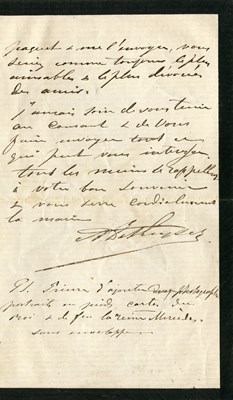 paquet & me l'envoyer, vous
seriez comme toujours le plus
aimable & le plus dévoué
des amis.
J'aurais soin de vous tenir
au courant & de vous
faire envoyer tout ce
qui peut vous intéresser
tous les miens le rappellent
à votre bon souvenir
& vous serre cordialement
la main
PS. Prière d'ajouter deux photographies
portraits en pied, cartes du
roi & de feu la reine Mercédès
sans enveloppe